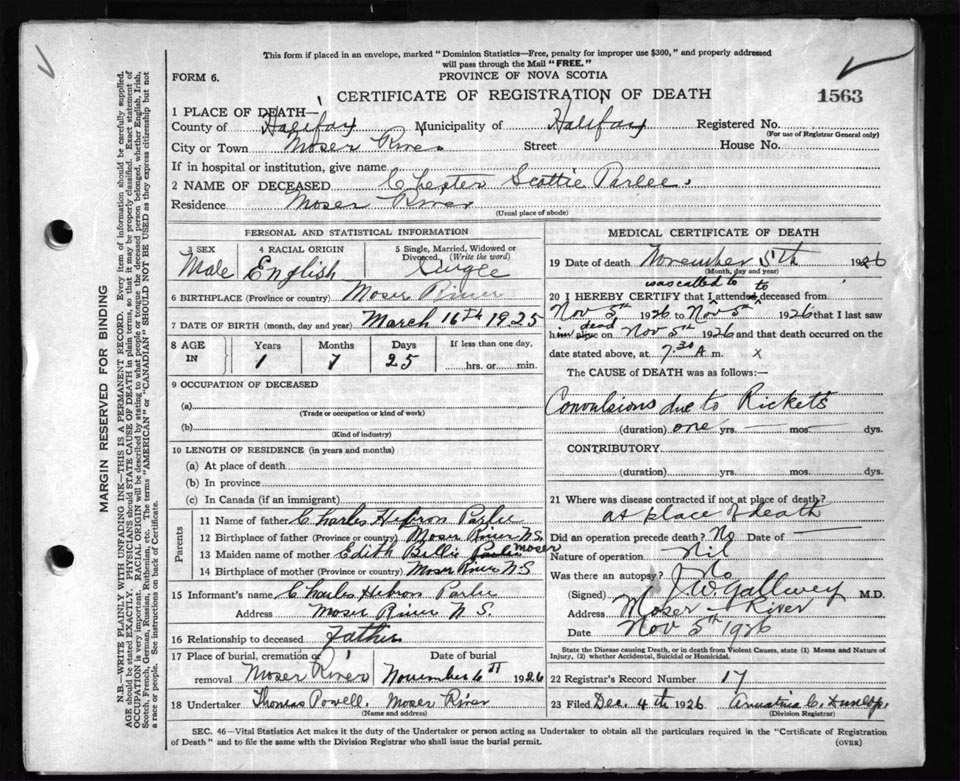 This form if placed in an envelope, marked "Dominion Statistics—Free, penalty for improper use $300," and properly addressed
will pass through the Mail "FREE."
FORM 6. PROVINCE OF NOVA SCOTIA
CERTIFICATE OF REGISTRATION OF DEATH 1563
1 PLACE OF DEATH—
County of Halifax Municipality of Halifax Registered No.
(For use of Registrar General only)
City or Town Moser River Street House No.
If in hospital or institution, give name
2 NAME OF DECEASED Chester Scottie Parlee.
Residence Moser River
(Usual place of abode)
PERSONAL AND STATISTICAL INFORMATION
3 SEX 4 RACIAL ORIGIN 5 Single, Married, Widowed or
Divorced. (Write the word)
Male English Single
6 BIRTHPLACE (Province or country) Moser River
7 DATE OF BIRTH (month, day and year) March 16th 1925
8 AGE IN Years Months Days If less than one day,
1 7 25 hrs. or min.
9 OCCUPATION OF DECEASED
(a)
(Trade or occupation or kind of work)
(b)
(Kind of industry)
10 LENGTH OF RESIDENCE (in years and months)
(a) At place of death
(b) In province
(c) In Canada (if an immigrant)
Parents
11 Name of father Charles Hebron Parlee
12 Birthplace of father (Province or country) Moser River N.S.
13 Maiden name of mother Edith Billie Moser
14 Birthplace of mother (Province or country) Moser River N.S
15 Informant's name Charles Hebron Parlee
Address Moser River N.S.
16 Relationship to deceased father
17 Place of burial, cremation or Date of burial
removal Moser River November 6 1926
18 Undertaker Thomas Powell. Moser River
(Name and address)
MEDICAL CERTIFICATE OF DEATH
19 Date of death November 5th 1926
(Month, day and year)
was called to to
20 I HEREBY CERTIFY that I attended deceased from
Nov 5th 1926 to Nov 5th 1926 that I last saw
dead
him alive on Nov 5th 1926 and that death occurred on
date stated above, at 7.30 A m. x
The CAUSE of DEATH was as follows:—
Convulsions due to Rickets
(duration) one yrs. — mos. — dys.
CONTRIBUTORY
(duration) yrs. mos. dys.
21 Where was disease contracted if not at place of death?
at place of death
Did an operation precede death? No Date of —
Nature of operation Nil
Was there an autopsy? No
(Signed) J. W. Gallwey M.D.
Address Moser River
Date Nov 5th 1926
State the Disease causing Death, or in death from Violent Causes, state (1) Means and Nature of
Injury, (2) whether Accidental, Suicidal or Homicidal.
22 Registrar's Record Number 17
23 Filed Dec. 4th 1926 C. Dunlop.
(Division Registrar)
SEC. 46—Vital Statistics Act makes it the duty of the Undertaker or person acting as Undertaker to obtain all the particulars required in the "Certificate of Registration
of Death" and to file the same with the Division Registrar who shall issue the burial permit. (OVER)
MARGIN RESERVED FOR BINDING
N.B.—WRITE PLAINLY WITH UNFADING INK—THIS IS A PERMANENT RECORD. Every item of information should be carefully supplied.
AGE should be stated EXACTLY. PHYSICIANS should STATE CAUSE OF DEATH in plain terms, so that it may be properly classified. Exact statement of
OCCUPATION is very important. RACIAL ORIGIN will be described by stating to what people or tongue the deceased person belonged, whether English, Irish,
Scotch, French, German, Russian, Ruthenian, etc. The terms "AMERICAN" or "CANADIAN" SHOULD NOT BE USED as they express citizenship but not
a race or people. See instructions on back of Certificate.